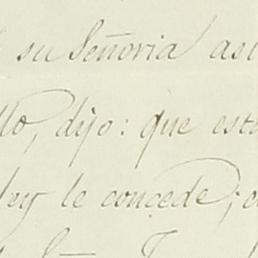 su Señoria asi
llo, dijo: que est
ley le concede;